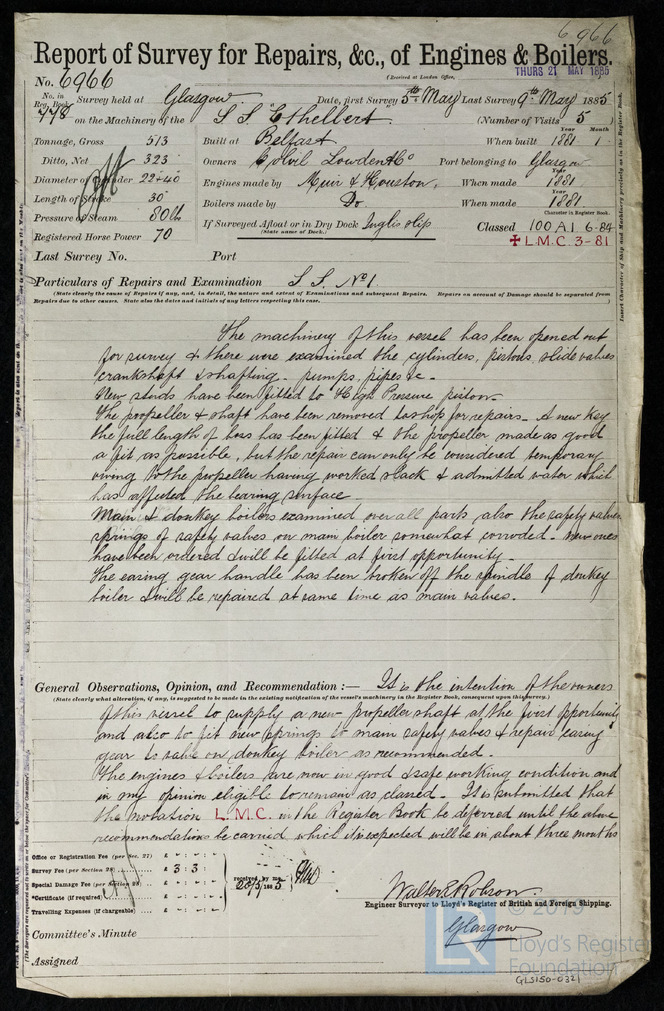 6966
Report of Survey for Repairs, &c., of Engines & Boilers.
(Received at London Office,
THURS 21 MAY 1885
No. 6966
No. in Reg. Book 778 Survey held at Glasgow Date, first Survey 5th May Last Survey 9th May 1885
on the Machinery of the S S "Ethelbert" (Number of Visits 5 )
Tonnage, Gross 513 Built at Belfast When built Year 1881 Month 1
Ditto, Net 323 Owners Colvil Lowden & Co Port belonging to Glasgow
Diameter of Cylinder 22+40 Engines made by Muir & Houston, When made Year 1881
Length of Stroke 30" Boilers made by Do. When made Year 1881
Pressure of Steam 80 lb If Surveyed Afloat or in Dry Dock Inglis slip
(State name of Dock.)
Character in Register Book.
Classed 100 A1 6-84
Registered Horse Power 70
L.M.C. 3-81
Last Survey No. Port
Particulars of Repairs and Examination S S. No 1.
(State clearly the cause of Repairs if any, and, in detail, the nature and extent of Examinations and subsequent Repairs. Repairs on account of Damage should be separated from
Repairs due to other causes. State also the dates and initials of any letters respecting this case.
The machinery of this vessel has been opened out
for survey & there were examined the cylinders, pistons, slide valves
crankshaft & shafting - pumps, pipes &c -
New studs have been fitted to High Pressure piston -
The propeller & shaft have been removed to shop for repairs - A new key
the full length of boss has been fitted & the propeller made as good
a fit as possible, but the repair can only be considered temporary
owing to the propeller having worked slack & admitted water which
has affected the bearing surface -
Main & donkey boilers examined over all parts also the safety valves
springs of safety valves on main boiler somewhat corroded - new ones
have been ordered & will be fitted at first opportunity -
The easing gear handle has been broken off the spindle of donkey
boiler & will be repaired at same time as main valves.
General Observations, Opinion, and Recommendation :— It is the intention of the owners
(State clearly what alteration, if any, is suggested to be made in the existing notification of the vessel's machinery in the Register Book, consequent upon this survey.)
of this vessel to supply a new propeller shaft at the first opportunity
and also to fit new springs to main safety valves & repair easing
gear to valve on donkey boiler as recommended.
The engines & boilers are now in good & safe working condition and
in my opinion eligible to remain as classed - It is submitted that
the notation L.M.C. in the Register Book be deferred until the above
recommendations be carried which it is expected will be in about three months
Office or Registration Fee (per Sec. 27) £
Survey Fee (per Section 28) £ 3 : 3 :
Special Damage Fee (per Section 28) £
*Certificate (if required) £
Travelling Expenses (if chargeable) £
received by me,
20/5/1885
Walter E Robson.
Engineer Surveyor to Lloyd's Register of British and Foreign Shipping.
Glasgow
Committee's Minute
Assigned
© 2019
LR
Lloyd's Register
Foundation
GLS150-0321